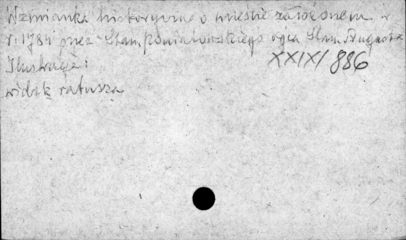 Wzmianka historyczna o mieście założonem w
r. 1784 przez Stan. Poniatowskiego ojca Stan. Augusta
Ilustracja:
widok ratusza
XXIX/886